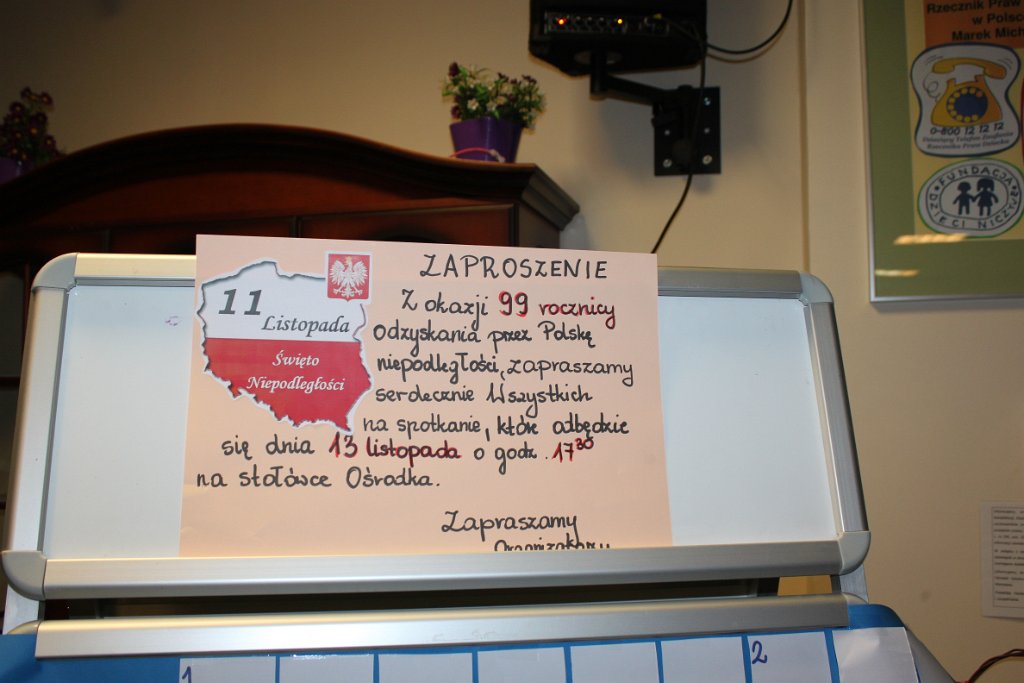 ZAPROSZENIE
Z okazji 99 rocznicy
odzyskania przez Polskę
niepodległości, zapraszamy
serdecznie Wszystkich
na spotkanie, które odbędzie
się dnia 13 listopada o godz. 17³⁰
na stołówce Ośrodka.
Zapraszamy
Organizatorzy
11
Listopada
Święto
Niepodległości
Rzecznik Praw
w Polsc
Marek Mich
0-800 12 12 12
Dziecięcy Telefon Zaufania
Rzecznika Praw Dziecka
FUNDACJA
DZIECI NICZYJE
1
2